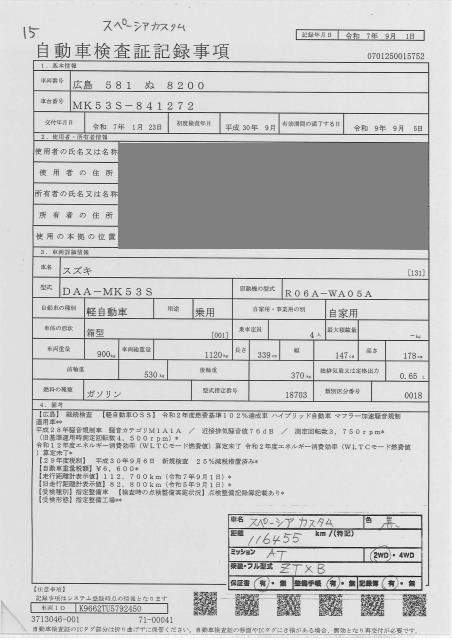 15 スペーシアカスタム
記録年月日 令和 7年 9月 1日
自動車検査証記録事項 0701250015752
1. 基本情報
車両番号 広島 581 ぬ 8200
車台番号 MK53S-841272
交付年月日 令和 7年 1月 23日 初度検査年月 平成 30年 9月 有効期間の満了する日 令和 9年 9月 5日
2. 使用者・所有者情報
使用者の氏名又は名称
使用者の住所
所有者の氏名又は名称
所有者の住所
使用の本拠の位置
3. 車両詳細情報
車名 スズキ [131]
型式 DAA-MK53S 原動機の型式 R06A-WA05A
自動車の種別 軽自動車 用途 乗用 自家用・事業用の別 自家用
車体の形状 箱型 [001] 乗車定員 4人 最大積載量 -kg
車両重量 900kg 車両総重量 1120kg 長さ 339cm 幅 147cm 高さ 178cm
前軸重 530kg 後軸重 370kg 総排気量又は定格出力 0.65 L
燃料の種類 ガソリン 型式指定番号 18703 類別区分番号 0018
4. 備考
【広島】 継続検査 【軽自動車OSS】 令和2年度燃費基準102%達成車 ハイブリッド自動車 マフラー加速騒音規制
適用車**
平成28年騒音規制車 騒音カテゴリM1A1A / 近接排気騒音値76dB / 測定回転数3,750rpm*
(旧基準適用時測定回転数4,500rpm)*
令和12年度エネルギー消費効率(WLTCモード燃費値)算定未了 令和2年度エネルギー消費効率(WLTCモード燃費値
)算定未了*
【29年度税制】 平成30年9月6日 新規検査 25%減税措置済み**
【自動車重量税額】¥6,600*
【走行距離計表示値】112,700km(令和7年9月1日)*
【旧走行距離計表示値】82,800km(令和5年9月1日)*
【受検種別】指定整備車 【検査時の点検整備実施状況】点検整備記録簿記載あり*
【受検形態】指定整備工場**
車名 スペーシアカスタム 色 黒
距離 116455 km/(特記)
ミッション AT 2WD・4WD
装備・フル型式 ZTXB
保証書 有・無 整備手帳 有・無 記録簿 有・無
【注意事項】
記録事項はシステム登録時点の情報となります
車両ID K9662TU5792450
3713046-001 71-00041
自動車検査証のICタグ部分は折り曲げずに保管ください。自動車検査証の券面やICタグにき損がある場合、無効となり再交付が必要です。